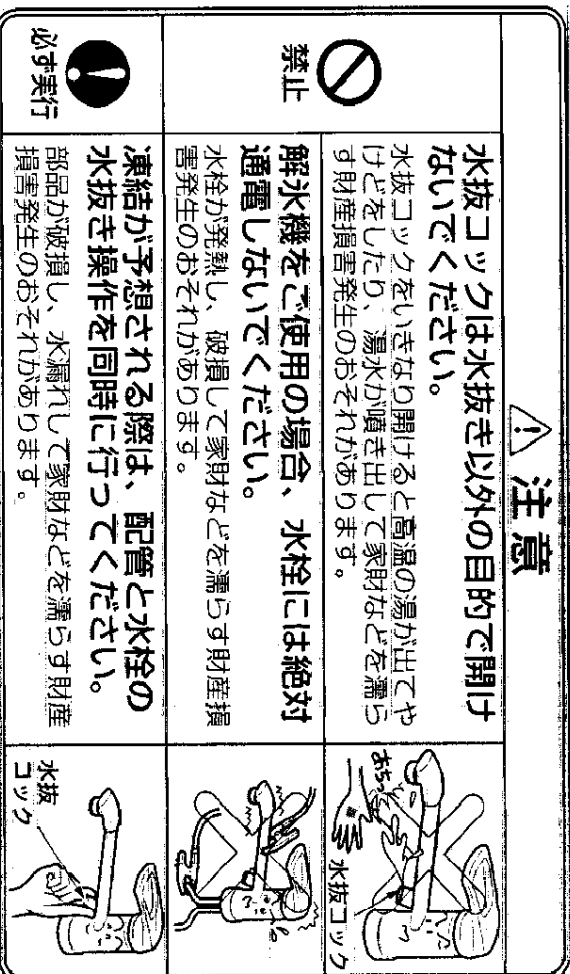 注意
禁止
水抜コックは水抜き以外の目的で開け
ないでください。
水抜コックをいきなり開けると高温の湯が出てや
けどをしたり、湯水が噴き出して家財などを濡ら
す財産損害発生のおそれがあります。
あちっ
水抜コック
解氷機をご使用の場合、水栓には絶対
通電しないでください。
水栓が発熱し、破損して家財などを濡らす財産損
害発生のおそれがあります。
必ず実行
凍結が予想される際は、配管と水栓の
水抜き操作を同時に行ってください。
部品が破損し、水漏れして家財などを濡らす財産
損害発生のおそれがあります。
水抜
コック